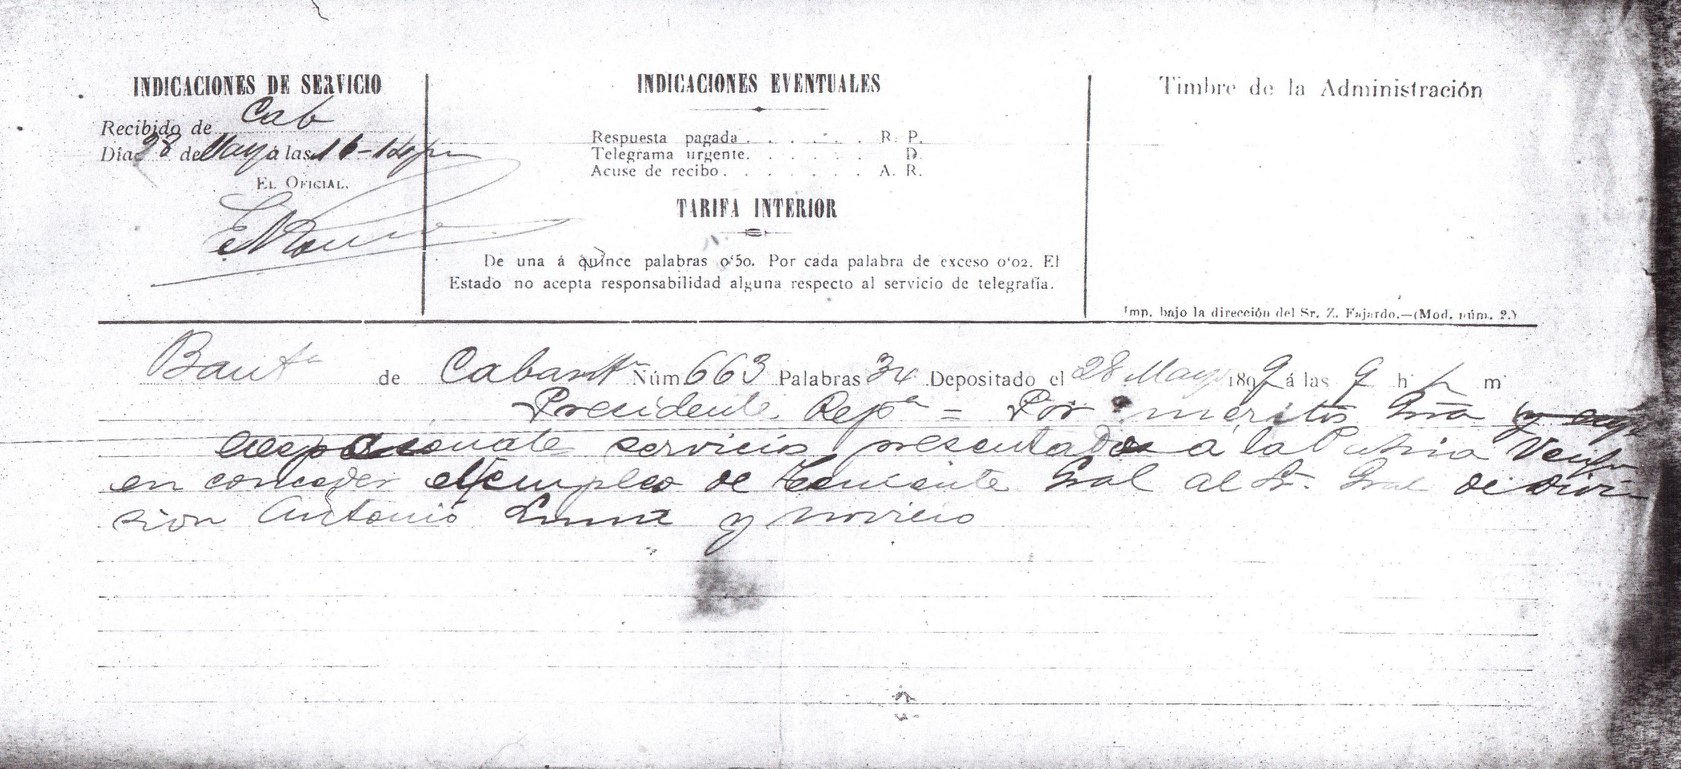 INDICACIONES DE SERVICIO
Recibido de Cab
Dia 28 de Mayo á las
EL OFICIAL.
INDICACIONES EVENTUALES
Respuesta pagada . . . . . . R. P.
Telegrama urgente. . . . . . D.
Acuse de recibo . . . . . . . A. R.
TARIFA INTERIOR
De una á quince palabras 0'50. Por cada palabra de exceso 0'02. El
Estado no acepta responsabilidad alguna respecto al servicio de telegrafía.
Timbre de la Administración
Imp. bajo la dirección del Sr. Z. Fajardo.—(Mod. núm. 2.)
de Núm 663 Palabras 34 Depositado el 28 Mayo 1899 á las 9 h m
Presidente Repª = Por méritos
servicios presentados á la Patria Vengo
en conceder el empleo de Teniente Gral al Sr. Gral de Divi
sion Antonio Luna y Novicio